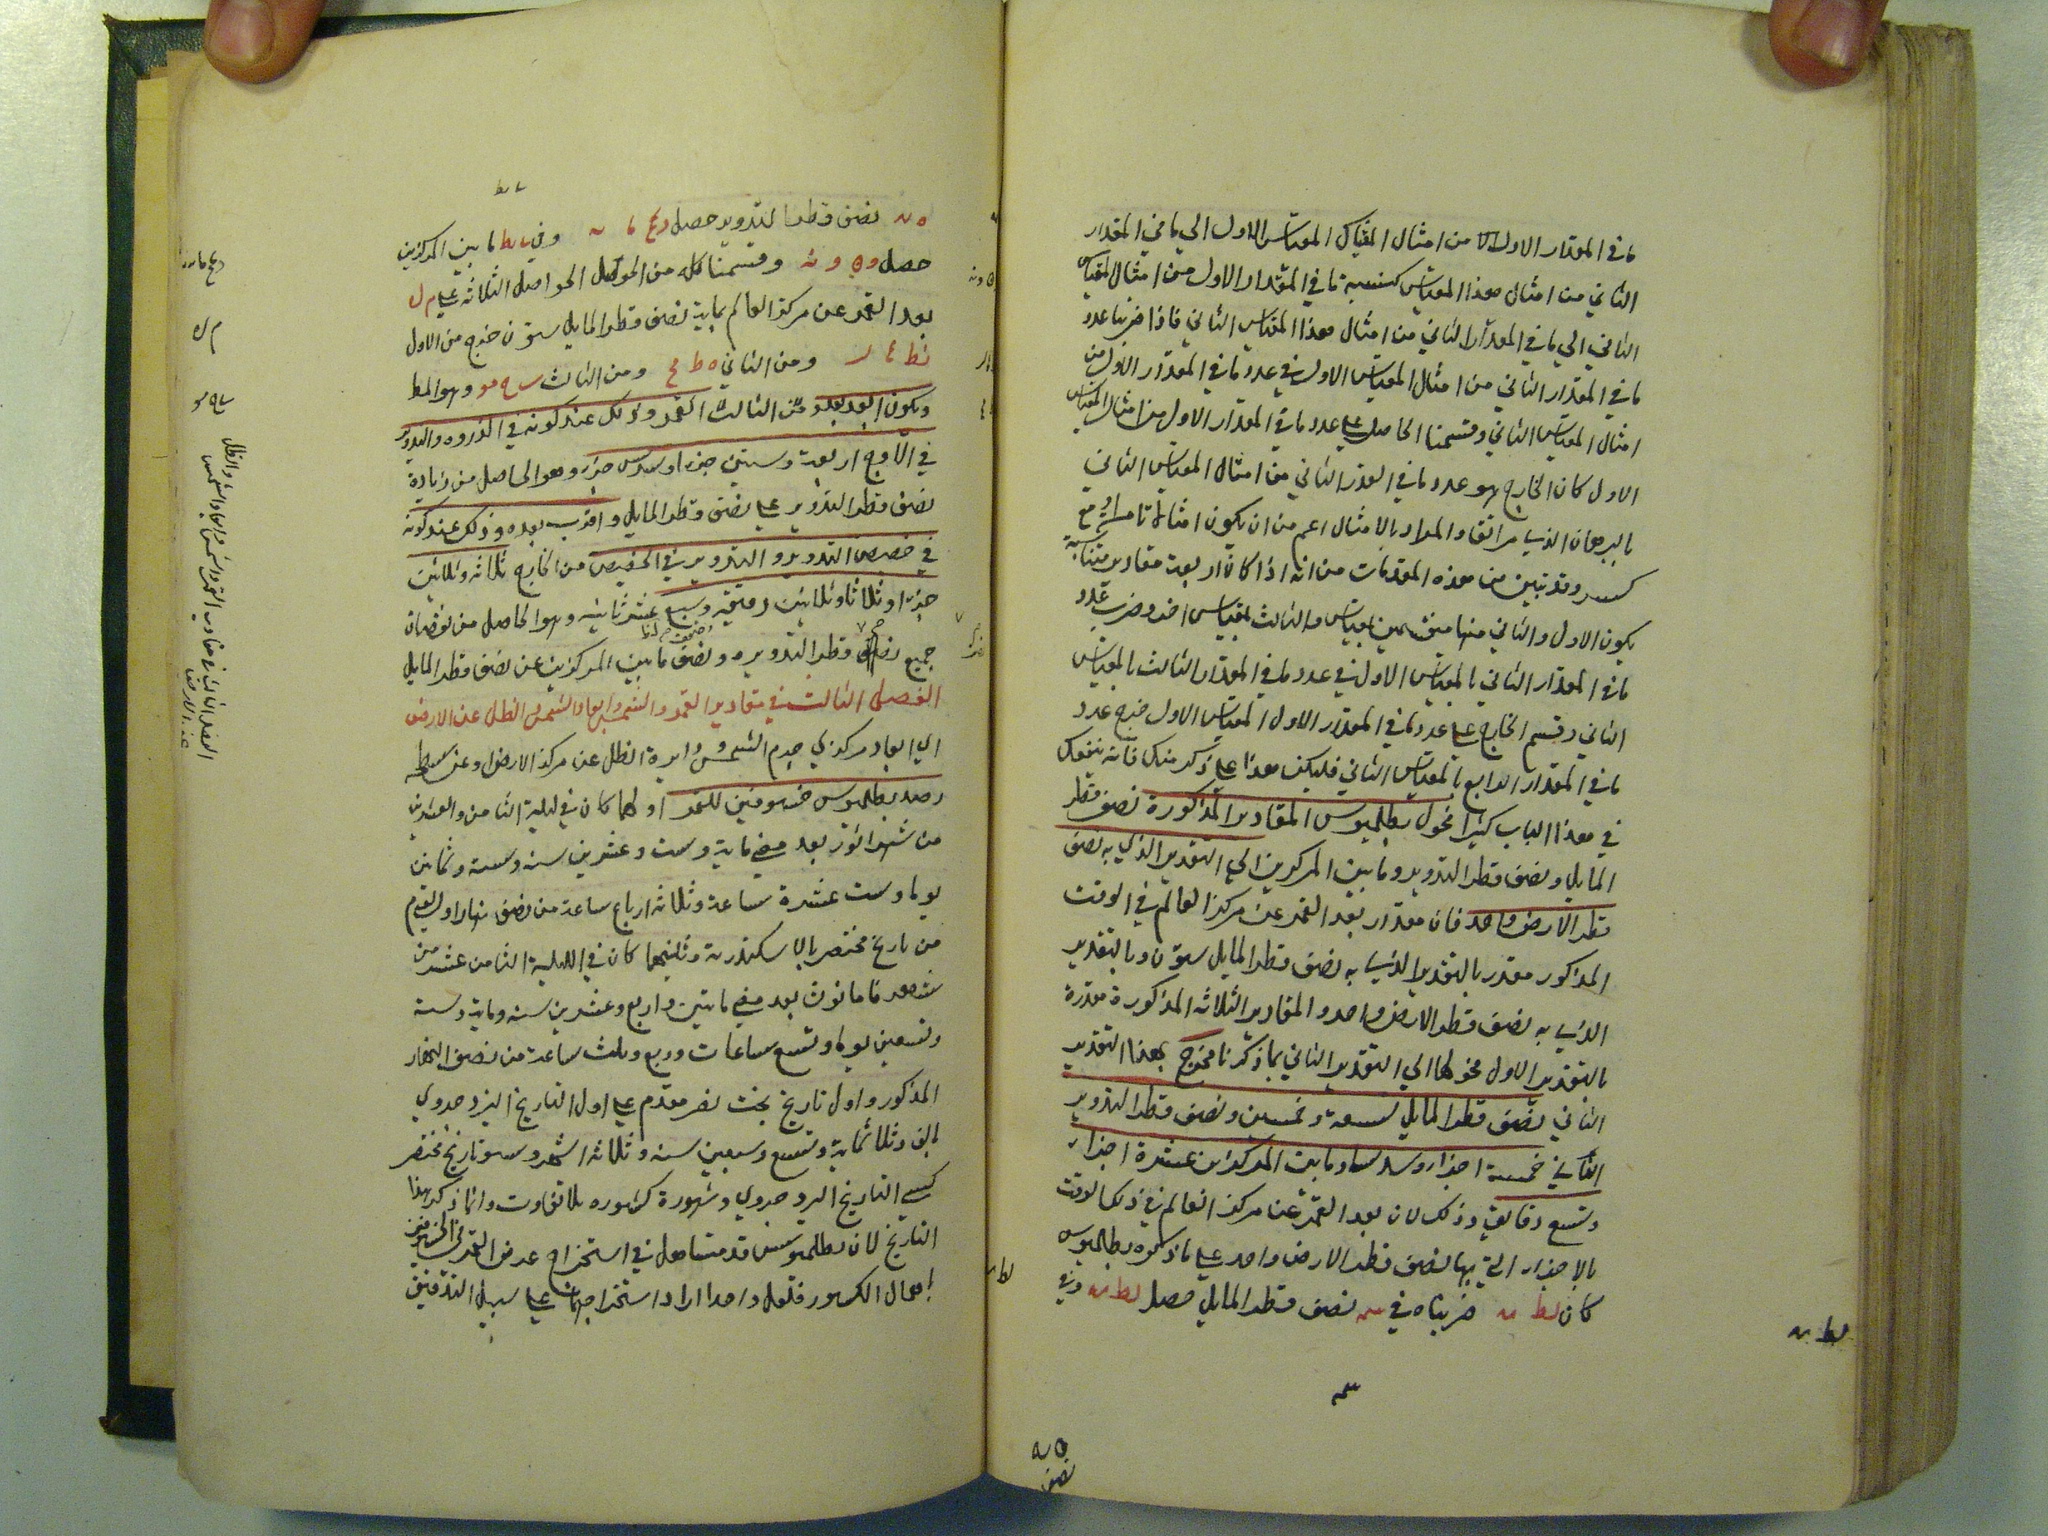 ما في المقدار الاول من امثال المقياس الاول الي ما في المقدار
الثاني من امثال هذا المقياس كنسبة ما في المقدار الاول من امثال المقياس
الثاني الي ما في المقدار الثاني من امثال هذا المقياس الثاني فاذا ضربنا عدد
ما في المقدار الثاني من امثال المقياس الاول في عدد ما في المقدار الاول من
امثال المقياس الثاني وقسمنا الحاصل على عدد ما في المقدار الاول من امثال المقياس
الاول كان الخارج هو عدد ما في القدر الثاني من امثال المقياس الثاني
بالبرهان الذي مر انفا والمراد بالامثال اعم من ان يكون امثالا تامة او مع
كسر وقد تبين من هذه المقدمات من انه اذا كان اربعة مقادير متناسبة
يكون الاول والثاني منها بمقياس والثالث بمقياس اخر وضرب عدد
ما في المقدار الثاني بالمقياس الاول في عدد ما في المقدار الثالث بالمقياس
الثاني وقسم الخارج على عدد ما في المقدار الاول المقياس الاول خرج عدد
ما في المقدار الرابع بالمقياس الثاني فليكن هذا على ذكر منك فانه ينفعك
في هذا الباب كثيرا نحول بطلميوس المقادير المذكورة نصف قطر
المايل ونصف قطر التدوير وما بين المركزين الي التقدير الذي به نصف
قطر الارض واحد فان مقدار بعد القمر عن مركز العالم في الوقت
المذكور مقدر بالتقدير الذي به نصف قطر المايل ستون وبالتقدير
الذي به نصف قطر الارض واحد والمقادير الثلاثة المذكورة مقدرة
بالتقدير الاول نحولها الي التقدير الثاني بما ذكرنا فخرج بهذا التقدير
الثاني نصف قطر المايل تسعة وخمسين ونصف قطر التدوير
الثاني خمسة اجزاء وسدسا وما بين المركزين عشرة اجزاء
وتسع دقايق وذلك لان بعد القمر عن مركز العالم في ذلك الوقت
بالاجزاء التي بها نصف قطر الارض واحد على ما ذكره بطلميوس
كان لط مه ضربناه في نصف قطر المايل حصل لط مه وفي
لط مه
نصف
نصف قطر التدوير حصل وفي ما بين المركزين
حصل وقسمنا كلا من الحواصل الثلاثة على م ل
بعد القمر عن مركز العالم بما به نصف قطر المايل ستون خرج من الاول
نط ومن الثاني ه ط ومن الثالث وهو المط
ويكون ابعد بعد القمر وذلك عند كونه في الذروة والتدوير
في الاوج اربعة وستين جزءا وسدس جزء وهو الحاصل من زيادة
نصف قطر التدوير على نصف قطر المايل واقرب بعده وذلك عند كونه
في حضيض التدوير والتدوير في الحضيض من الخارج ثلاثة وثلاثين
جزءا وثلاثا وثلاثين دقيقة وسبع عشر ثانية وهو الحاصل من نقصان
جميع نصف قطر التدوير وضعف ما بين المركزين عن نصف قطر المايل
الفصل الثالث في مقادير القمر والشمس وابعاد الشمس والظل عن الارض
اي ابعاد مركزي جرم الشمس ودايرة الظل عن مركز الارض وعن سطحه
رصد بطلميوس خسوفين للقمر اولهما كان في ليلة الثامن والعشرين
من شهر اتور بعد مضي ماية وست وعشرين سنة وستة وثمانين
يوما وست عشرة ساعة وثلاثة ارباع ساعة من نصف نهار اول يوم
من تاريخ مختصر بالاسكندرية وثانيهما كان في الليلة الثامن عشر من
شهر فامانوث بعد مضي مايتين واربع وعشرين سنة وماية وستة
وتسعين يوما وتسع ساعات وربع وثلث ساعة من نصف النهار
المذكور واول تاريخ بخت نصر مقدم على اول التاريخ اليزدجردي
بالف وثلاثماية وتسع وسبعين سنة وثلاثة اشهر وسنو تاريخ بختنصر
كسني التاريخ اليزدجردي وشهوره كشهوره بلا تفاوت وانما ذكر هذا
التاريخ لان بطلميوس قد متساهل في استخراج عرض القمر في الخسوفين
باهمال الكسور فلعل واحدا اراد استخراجهما على سبيل التدقيق
الفصل الثالث في مقادير القمر والشمس وابعاد الشمس والظل
عن الارض